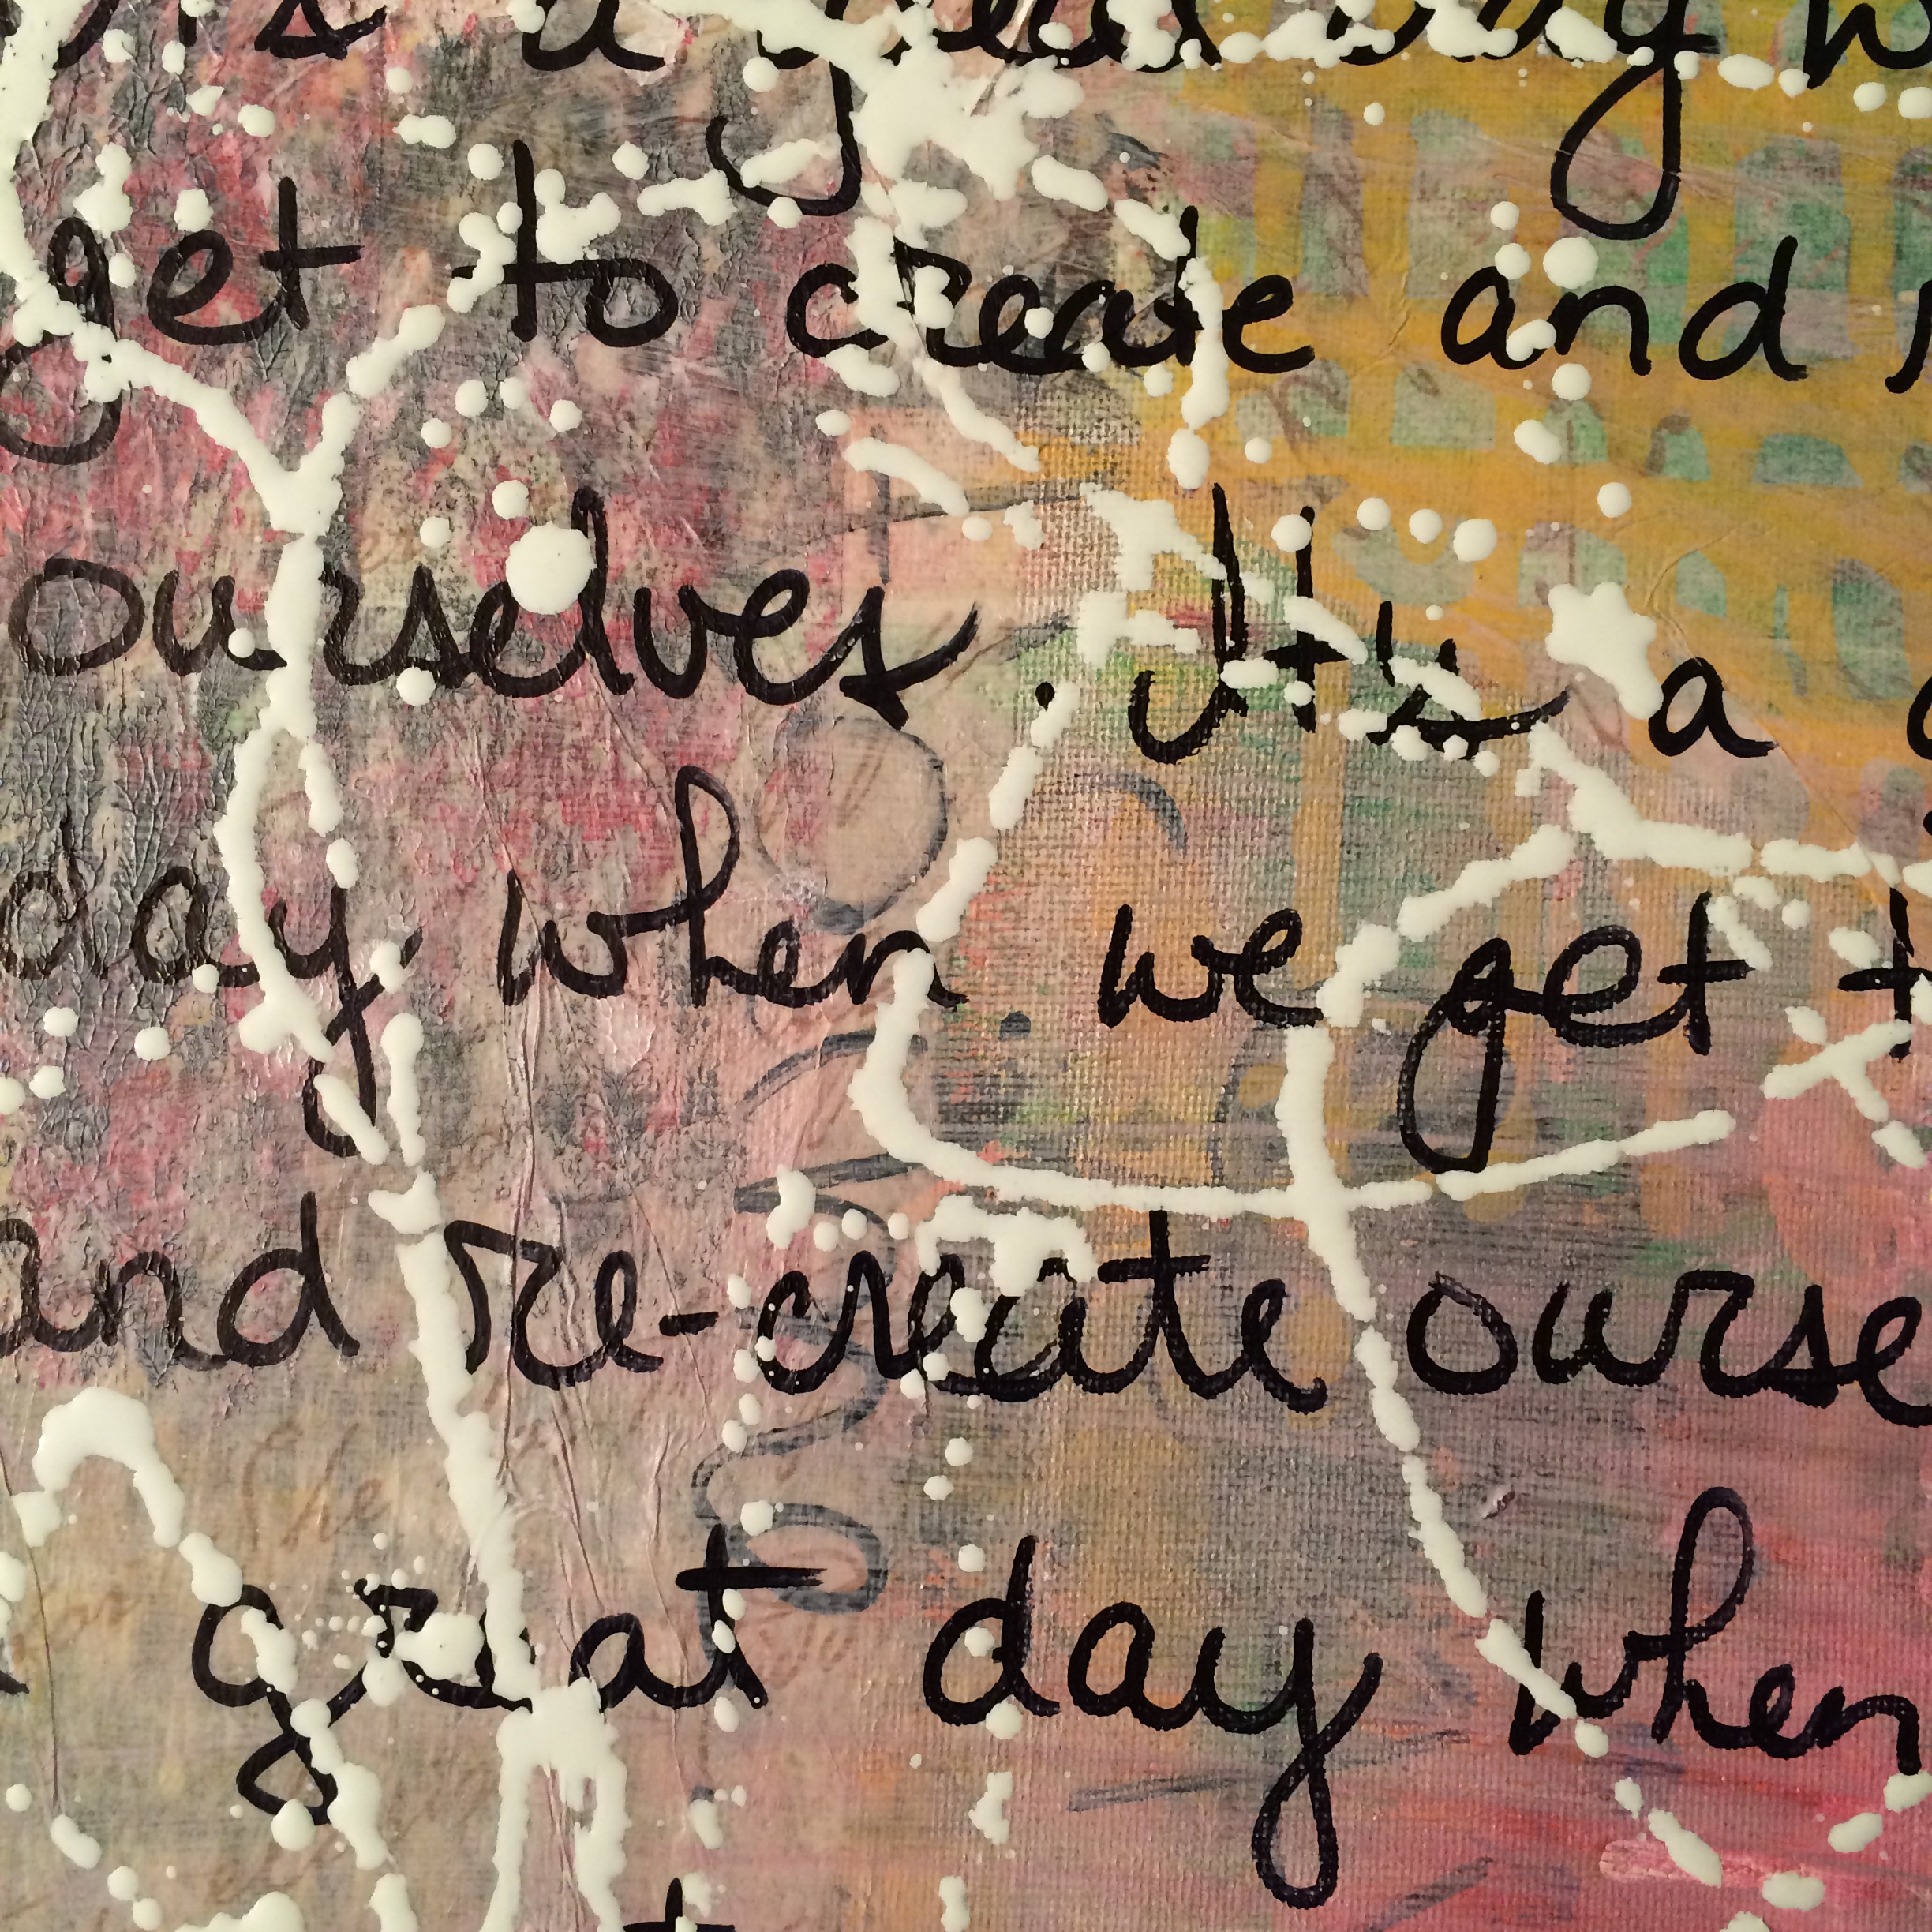 It's a great day w
get to create and
ourselves. It's a
day when we get t
and re-create ourse
great day when